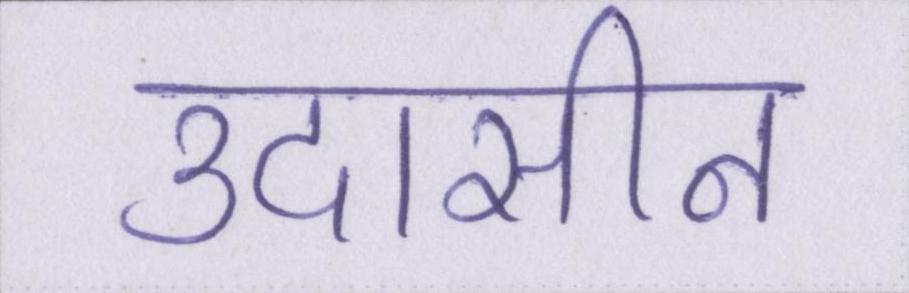 उदासीन